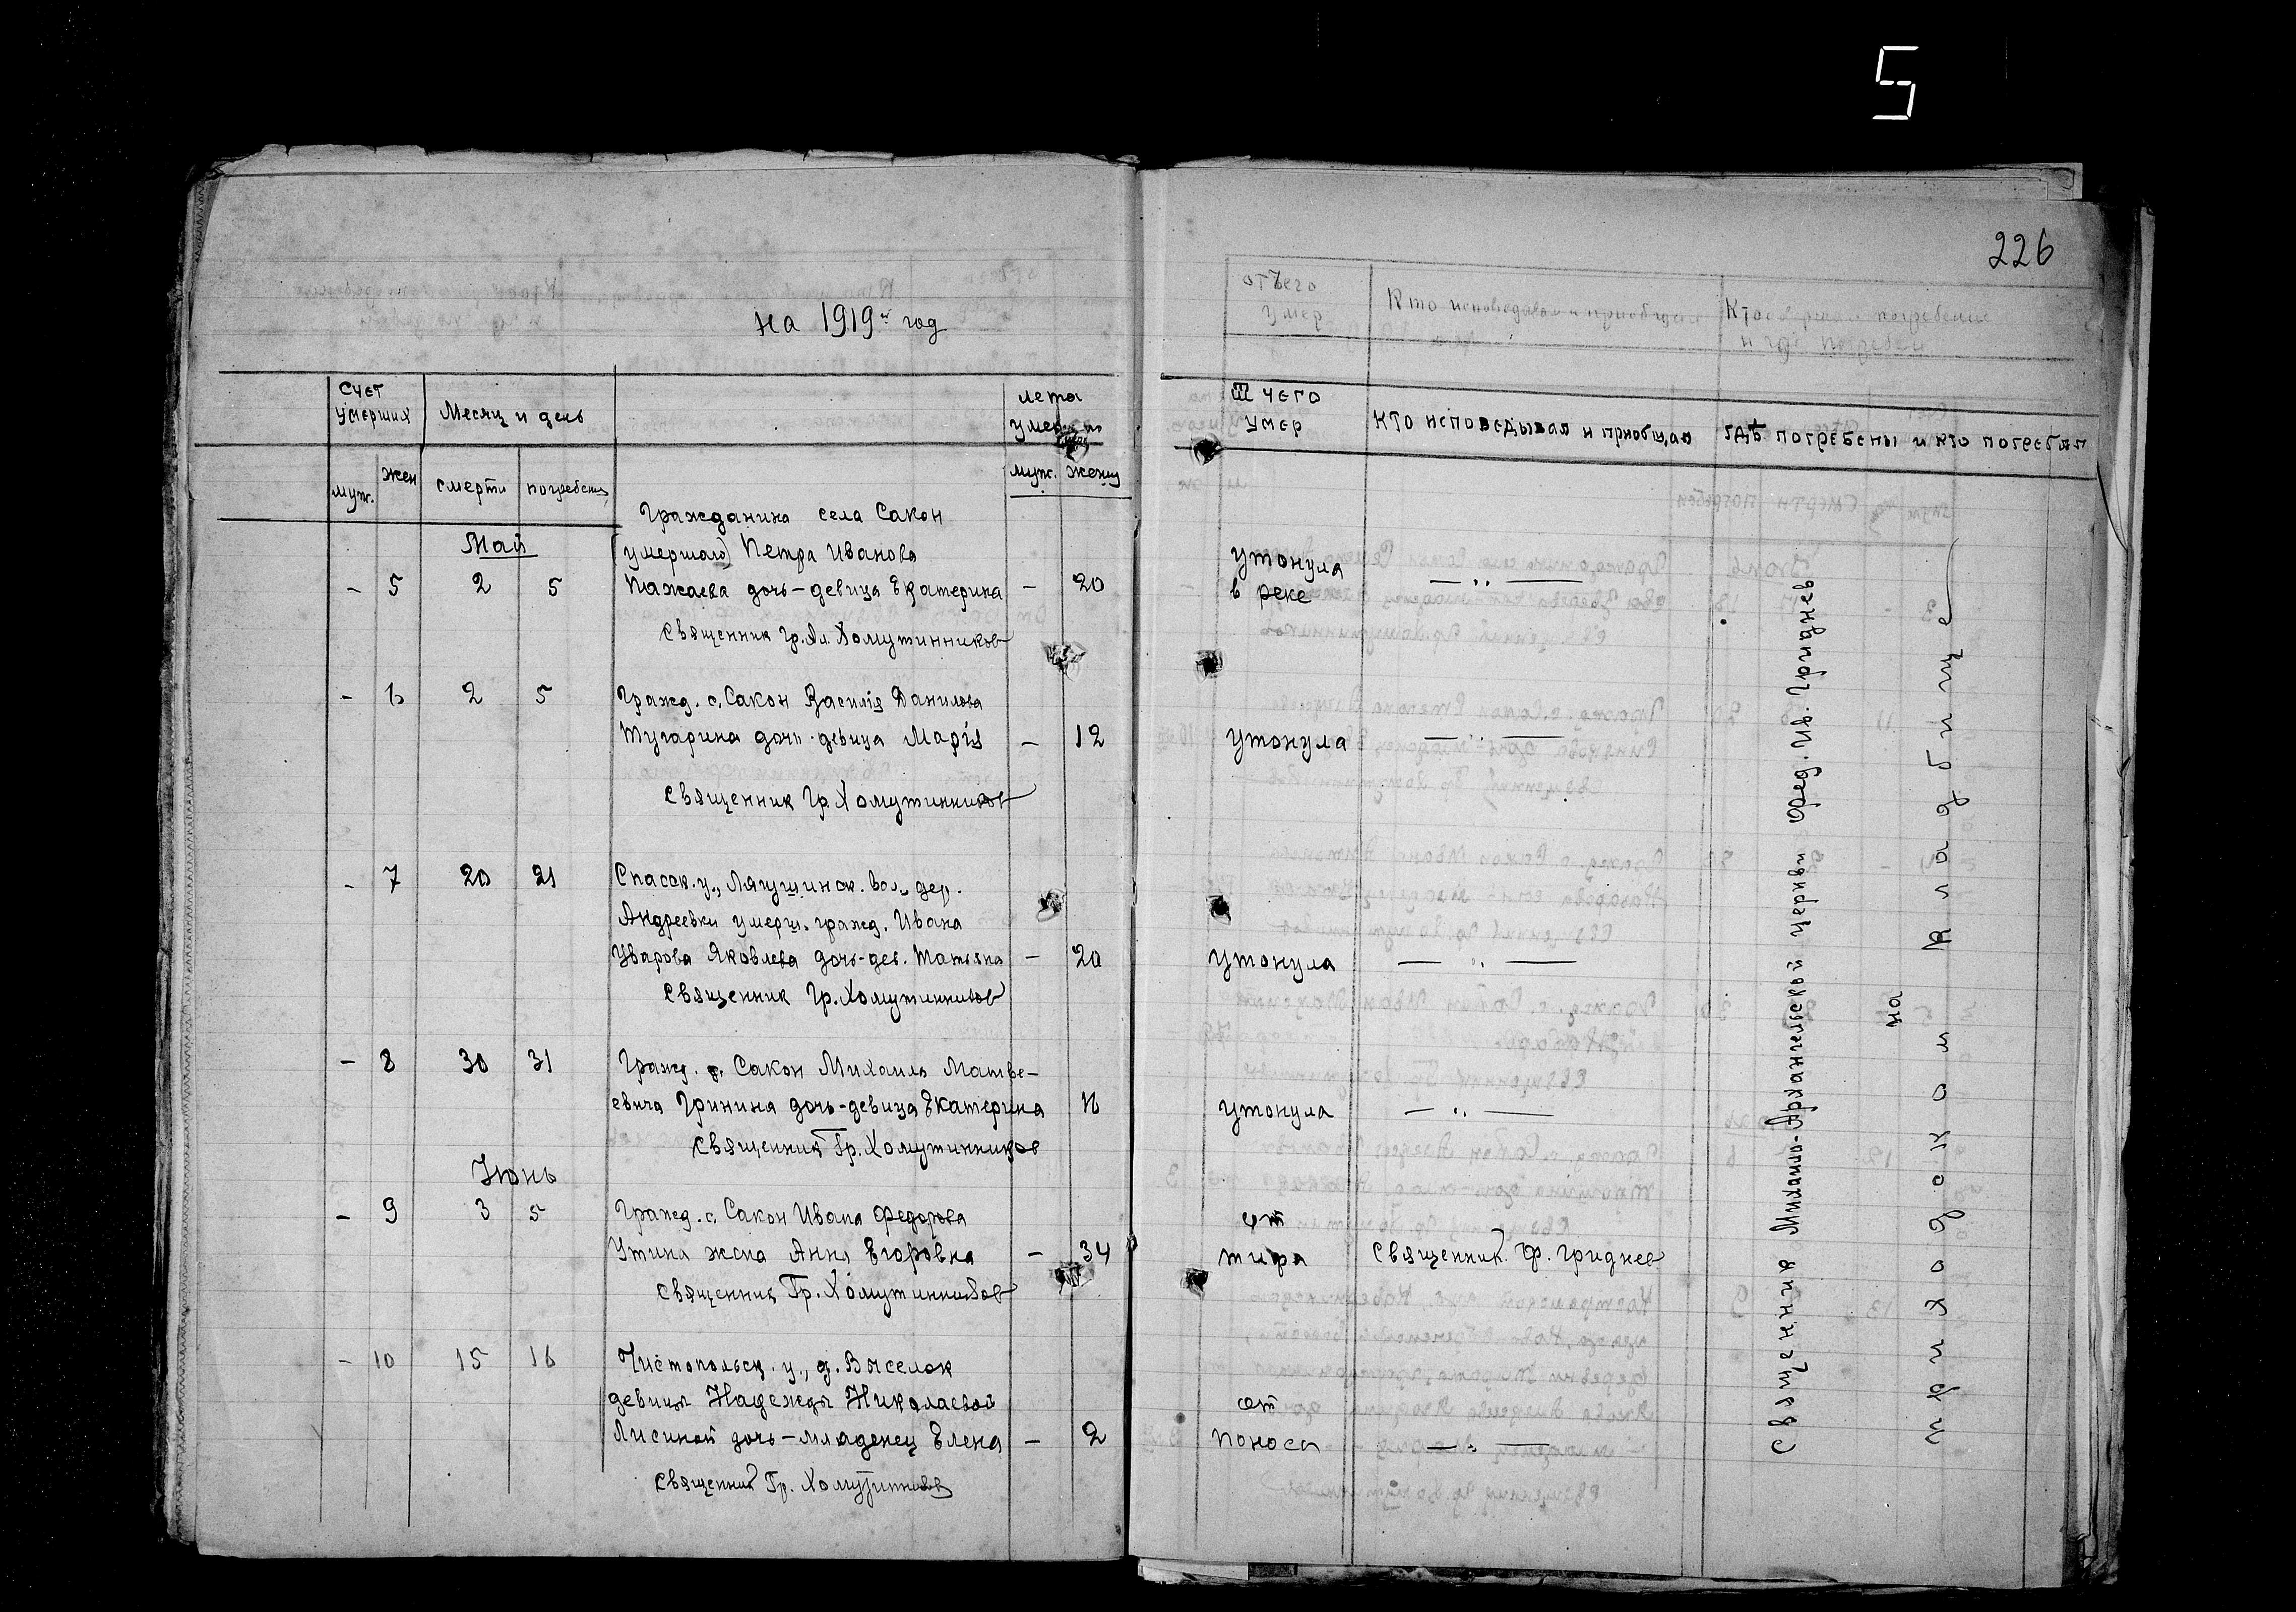 5
226
на 1919й год
Счет умерших
Месяц и день
лета
умерших
муж.
жен
смерти
погребения
муж.
женщ
Ѿ чего
умер
Кто исповедывал и приобщал
гдѣ погребены и кто погребал
отъего
умер
Кто исповедовал и приобщал
Кто совершал погребение
и где погребен
Май
Гражданина села Сакон
(умершаго) Петра Иванова
- 5 2 5 Пажаева дочь-девица Екатерина - 20
утонула
в реке
— „ —
Священник Гр. Ал. Хомутинников
- 6 2 5 Гражд. с. Сакон Василiя Данилова
Тугарина дочь-девица Марiя - 12 утонула — „ —
Священник Гр. Хомутинников
- 7 20 21 Спасск. у., Лягушинск. вол., дер.
Андреевки умерш. гражд. Ивана
Уварова Яковлева дочь-дев. Татьяна - 20 утонула — „ —
Священник Гр. Хомутинников
- 8 30 31 Гражд. с. Сакон Михаила Матве-
евича Гринина дочь-девица Екатерина 16 утонула — „ —
Священник Гр. Хомутинников
Iюнь
- 9 3 5 Гражд. с. Сакон Ивана Федорова от
Утина жена Анна Егоровна - 34 тифа Священник Ф. Гриднев
Священник Гр. Хомутинников
- 10 15 16 Чистопольск. у., д. Выселок
девицы Надежды Николаевой от
Лисиной дочь-младенец Елена - 2 поноса — „ —
Священник Гр. Хомутинников
Священник Михаило-Архангельской церкви Фед. Ив. Гриднев
на
приходском кладбище